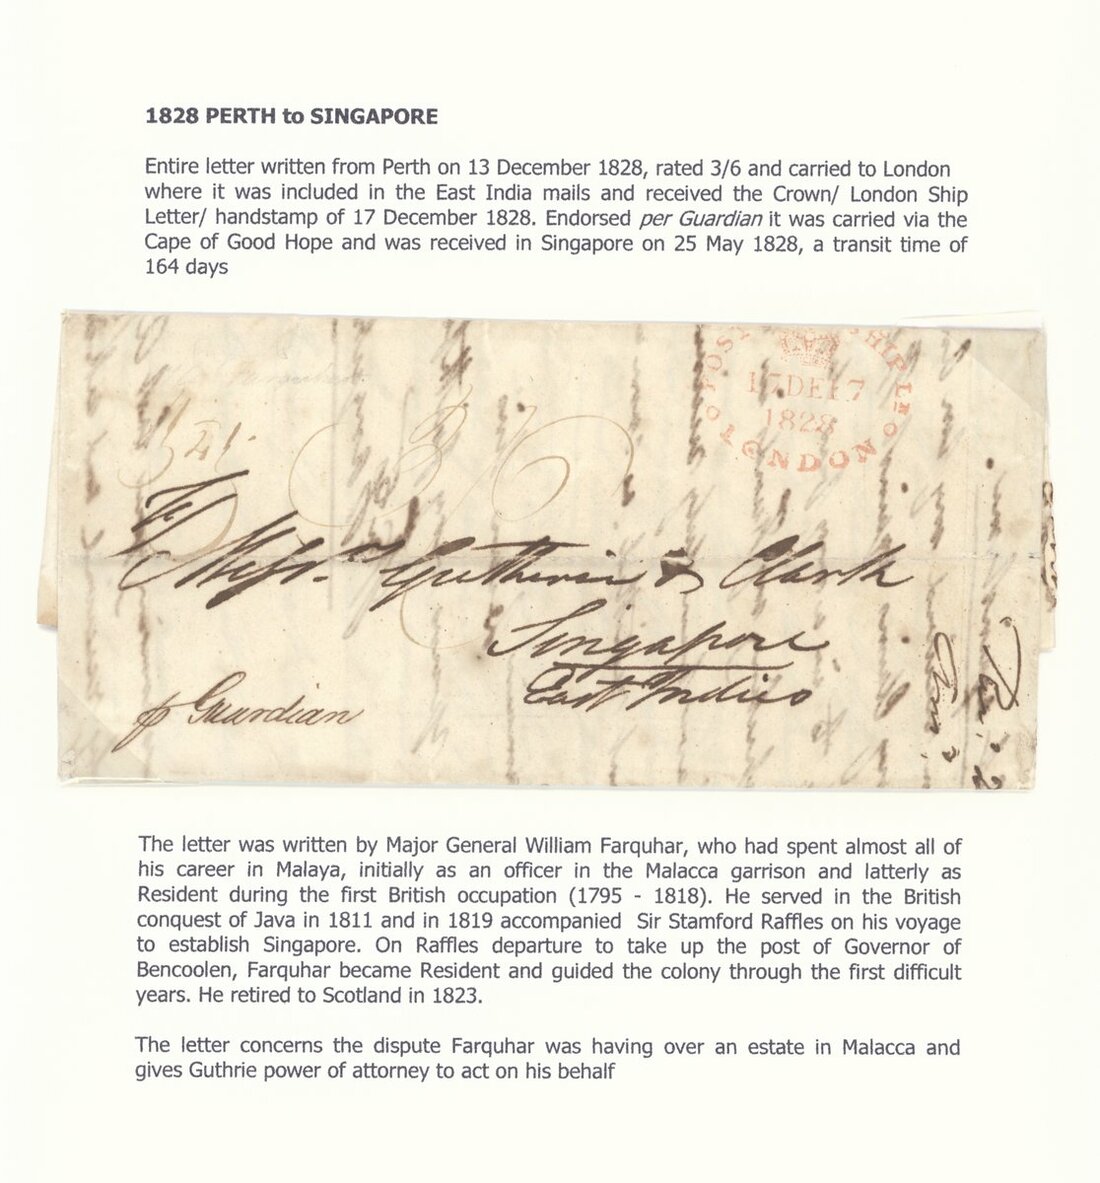 1828 PERTH to SINGAPORE
Entire letter written from Perth on 13 December 1828, rated 3/6 and carried to London
where it was included in the East India mails and received the Crown/ London Ship
Letter/ handstamp of 17 December 1828. Endorsed per Guardian it was carried via the
Cape of Good Hope and was received in Singapore on 25 May 1828, a transit time of
164 days
17DE17
1828
LONDON
3/6
Messrs Guthrie & Clark
Singapore
East Indies
p Guardian
The letter was written by Major General William Farquhar, who had spent almost all of
his career in Malaya, initially as an officer in the Malacca garrison and latterly as
Resident during the first British occupation (1795 - 1818). He served in the British
conquest of Java in 1811 and in 1819 accompanied Sir Stamford Raffles on his voyage
to establish Singapore. On Raffles departure to take up the post of Governor of
Bencoolen, Farquhar became Resident and guided the colony through the first difficult
years. He retired to Scotland in 1823.
The letter concerns the dispute Farquhar was having over an estate in Malacca and
gives Guthrie power of attorney to act on his behalf